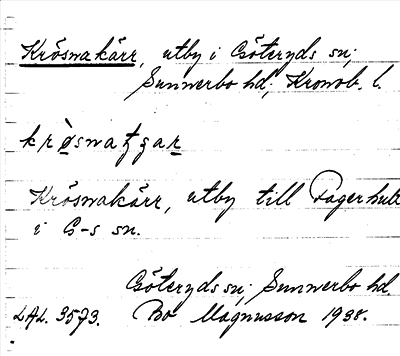 Krösnakärr, utby i Göteryds sn;
Sunnerbo hd; Kronob. l.
krøsnatzar
Krösnakärr, utby till Fagerhult
i G-s sn.
Göteryds sn; Sunnerbo hd.
LAL. 3573. Bo Magnusson 1938.